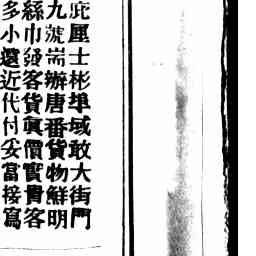 庇厘士彬埠域敢大街門
九號耑辦唐番貨物鮮明
絲巾發客貨真價實貴客
多小遠近代付妥當接寫